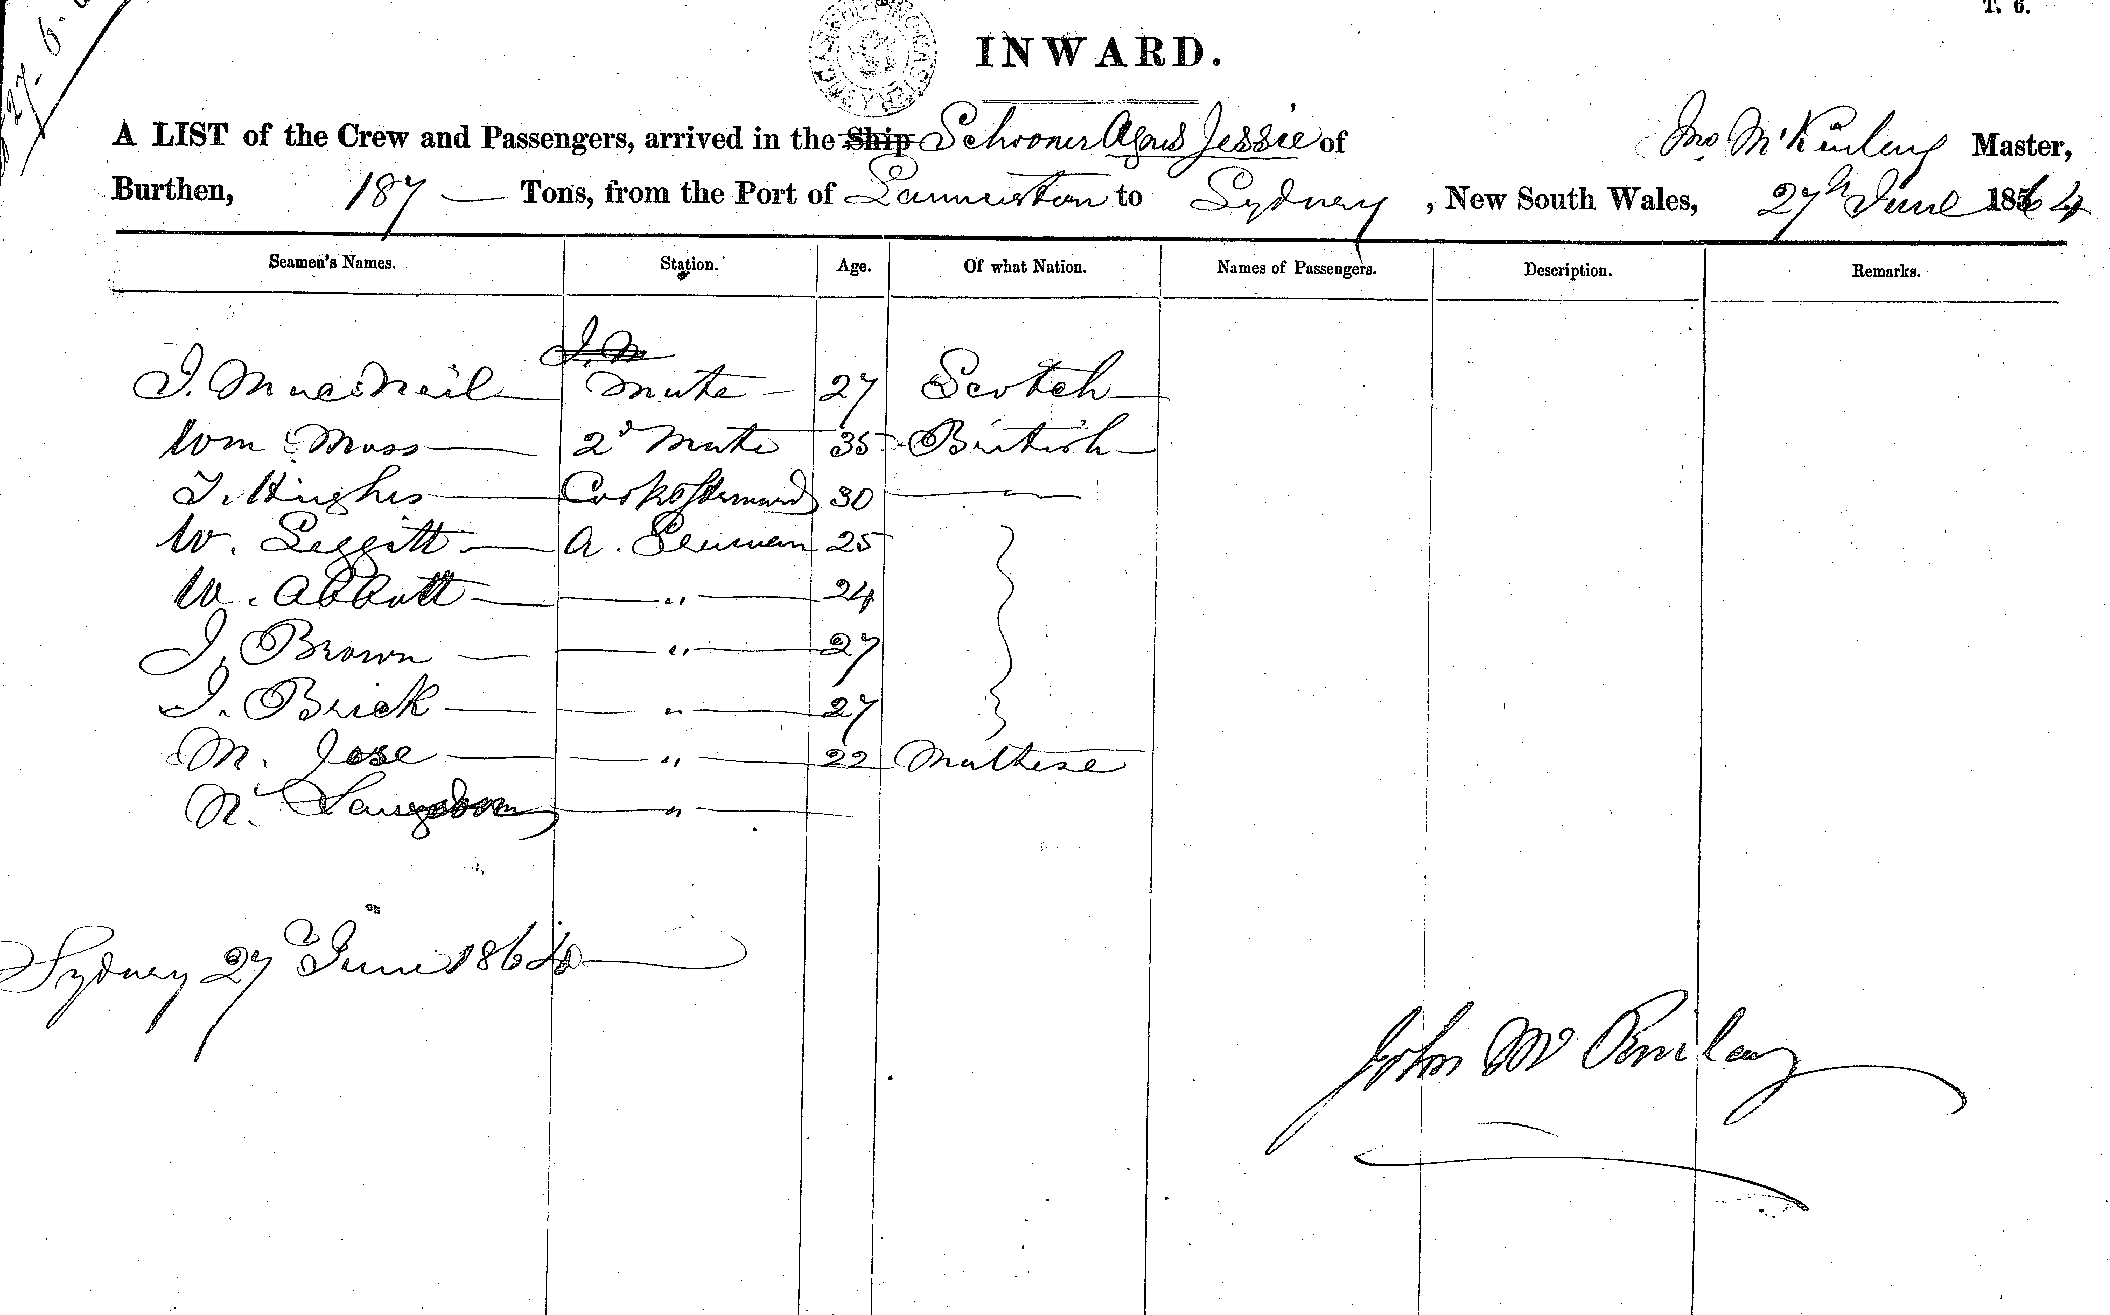 T. 6.
27. 6.
INWARD.
A LIST of the Crew and Passengers, arrived in the Ship Schooner Agnes Jessie of Jno. McKinlay Master,
Burthen, 187 — Tons, from the Port of Launceston to Sydney, New South Wales, 27th June 1864
Seamen's Names. Station. Age. Of what Nation. Names of Passengers. Description. Remarks.
J. M
J. MacNeil — Mate — 27 Scotch —
Wm Moss — 2d Mate 35 British —
T. Hughes — Cook & Steward 30 —
W. Leggitt — A. Seaman 25
W. Abbott — " — 24
J. Brown — " — 27
J. Brick — " — 27
M. Jose — " — 22 Maltese
N. — " —
Sydney 27 June 1864
John Mc Kinlay